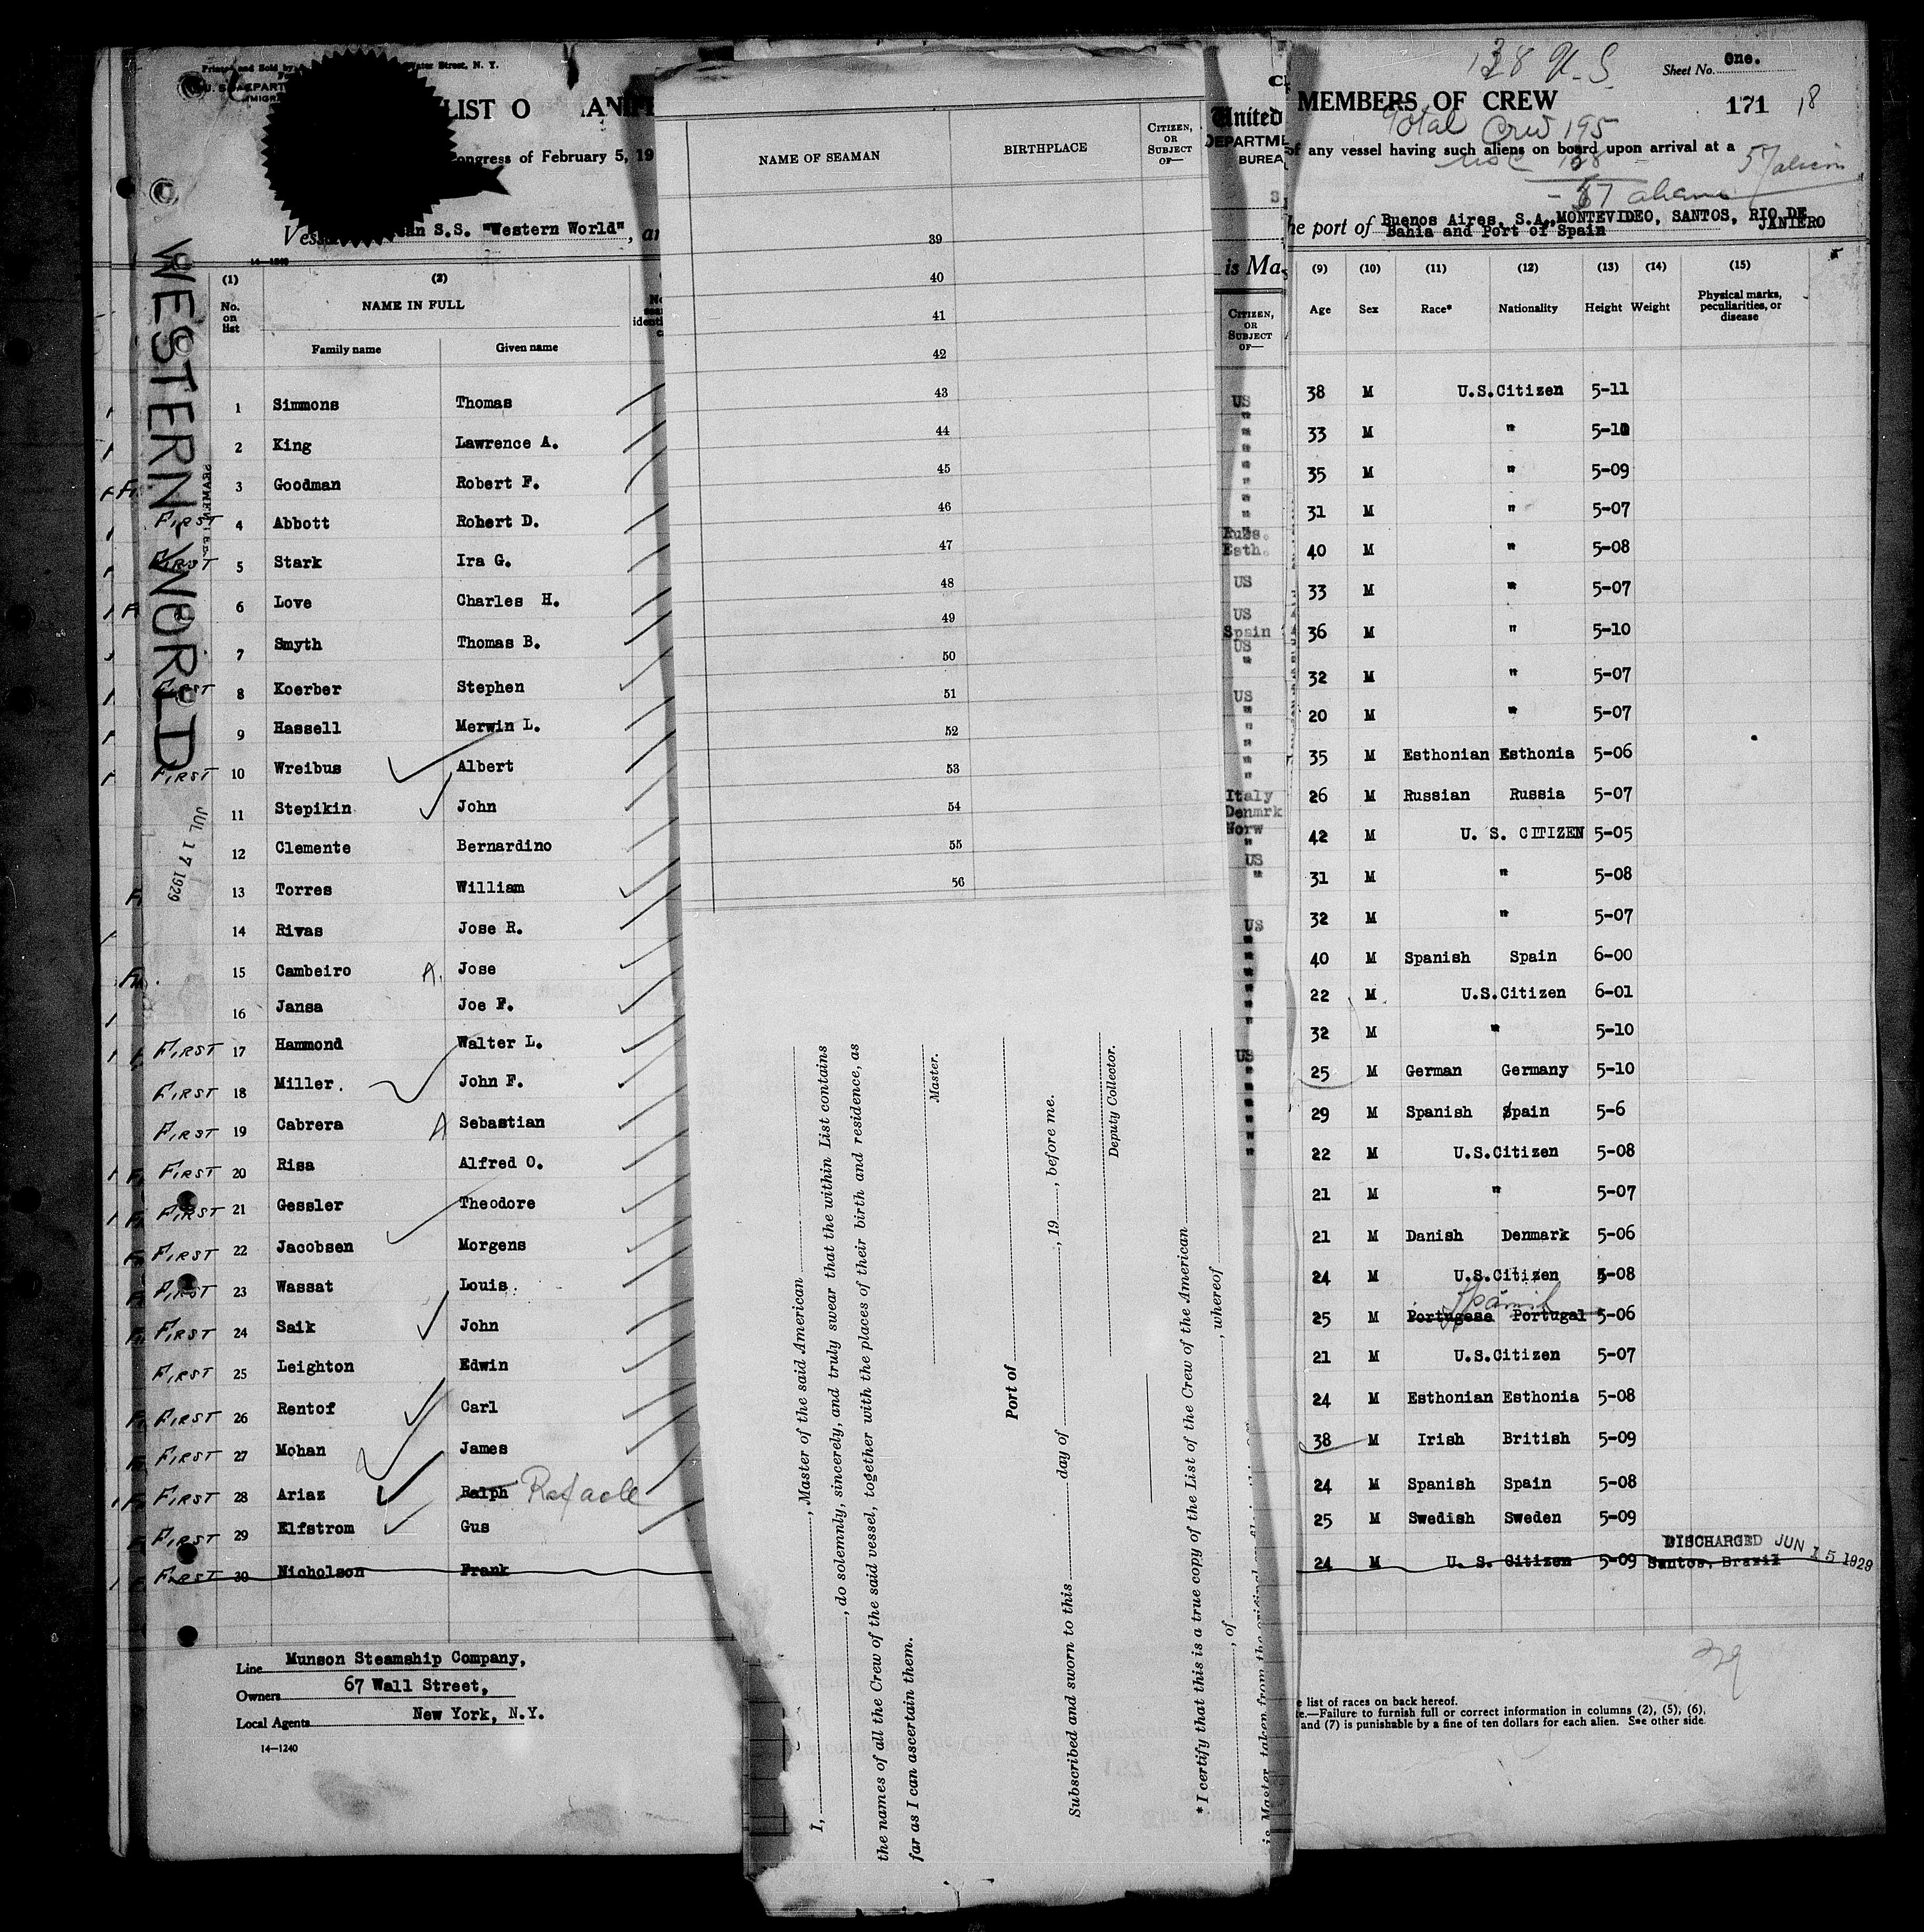 Printed and Sold by Water Street, N. Y.
LIST O
ongress of February 5, 19
an S.S. "Western World"
WESTERN WORLD
JUL 17 1929
14-1240
(1) (2)
No. on list NAME IN FULL
Family name Given name
1 Simmons Thomas
2 King Lawrence A.
3 Goodman Robert F.
FIRST 4 Abbott Robert D.
FIRST 5 Stark Ira G.
6 Love Charles H.
7 Smyth Thomas B.
FIRST 8 Koerber Stephen
9 Hassell Merwin L.
FIRST 10 Wreibus Albert
11 Stepikin John
12 Clemente Bernardino
13 Torres William
14 Rivas Jose R.
15 Cambeiro A. Jose
16 Jansa Joe F.
FIRST 17 Hammond Walter L.
FIRST 18 Miller. John F.
FIRST 19 Cabrera A Sebastian
FIRST 20 Risa Alfred O.
FIRST 21 Gessler Theodore
FIRST 22 Jacobsen Morgens
FIRST 23 Wassat Louis.
FIRST 24 Saik John
FIRST 25 Leighton Edwin
FIRST 26 Rentof Carl
FIRST 27 Mohan James
FIRST 28 Ariaz Ralph Rafaele
FIRST 29 Elfstrom Gus
FIRST 30 Nicholson Frank
Line Munson Steamship Company,
Owners 67 Wall Street,
Local Agents New York, N.Y.
14-1240
NAME OF SEAMAN BIRTHPLACE CITIZEN, OR SUBJECT OF—
39
40
41
42
43
44
45
46
47
48
49
50
51
52
53
54
55
56
I, , Master of the said American
, do solemnly, sincerely, and truly swear that the within List contains
the names of all the Crew of the said vessel, together with the places of their birth and residence, as
far as I can ascertain them.
Master.
Port of
Subscribed and sworn to this day of , 19 , before me.
Deputy Collector.
*I certify that this is a true copy of the List of the Crew of the American
, of , whereof
is Master, taken from the original
United
DEPARTME
BUREA
is Mas
CITIZEN, OR SUBJECT OF—
US
"
"
"
"
"
"
Russ.
Esth.
US
US
Spain
US
"
US
"
"
"
"
Italy
Denmrk
Norw
"
US
"
US
"
"
"
"
"
US
"
"
"
"
"
"
138 U.S Sheet No. One.
MEMBERS OF CREW 171 18
Total Crew 195
of any vessel having such aliens on board upon arrival at a 57 aliens
USC 138
- 57 aliens
he port of Buenos Aires, S.A., MONTEVIDEO, SANTOS, RIO DE JANIERO
Bahia and Port of Spain
(9) (10) (11) (12) (13) (14) (15)
Age Sex Race* Nationality Height Weight Physical marks, peculiarities, or disease
38 M U.S.Citizen 5-11
33 M " 5-10
35 M " 5-09
31 M " 5-07
40 M " 5-08
33 M " 5-07
36 M " 5-10
32 M " 5-07
20 M " 5-07
35 M Esthonian Esthonia 5-06
26 M Russian Russia 5-07
42 M U. S. CITIZEN 5-05
31 M " 5-08
32 M " 5-07
40 M Spanish Spain 6-00
22 M U.S.Citizen 6-01
32 M " 5-10
25 M German Germany 5-10
29 M Spanish Spain 5-6
22 M U.S.Citizen 5-08
21 M " 5-07
21 M Danish Denmark 5-06
24 M U.S.Citizen 5-08
Spanish
25 M Portugese Portugal 5-06
21 M U.S.Citizen 5-07
24 M Esthonian Esthonia 5-08
38 M Irish British 5-09
24 M Spanish Spain 5-08
25 M Swedish Sweden 5-09
DISCHARGED JUN 15 1929
24 M U. S. Citizen 5-09 Santos, Brazil
29
e list of races on back hereof.
te.—Failure to furnish full or correct information in columns (2), (5), (6),
and (7) is punishable by a fine of ten dollars for each alien. See other side.